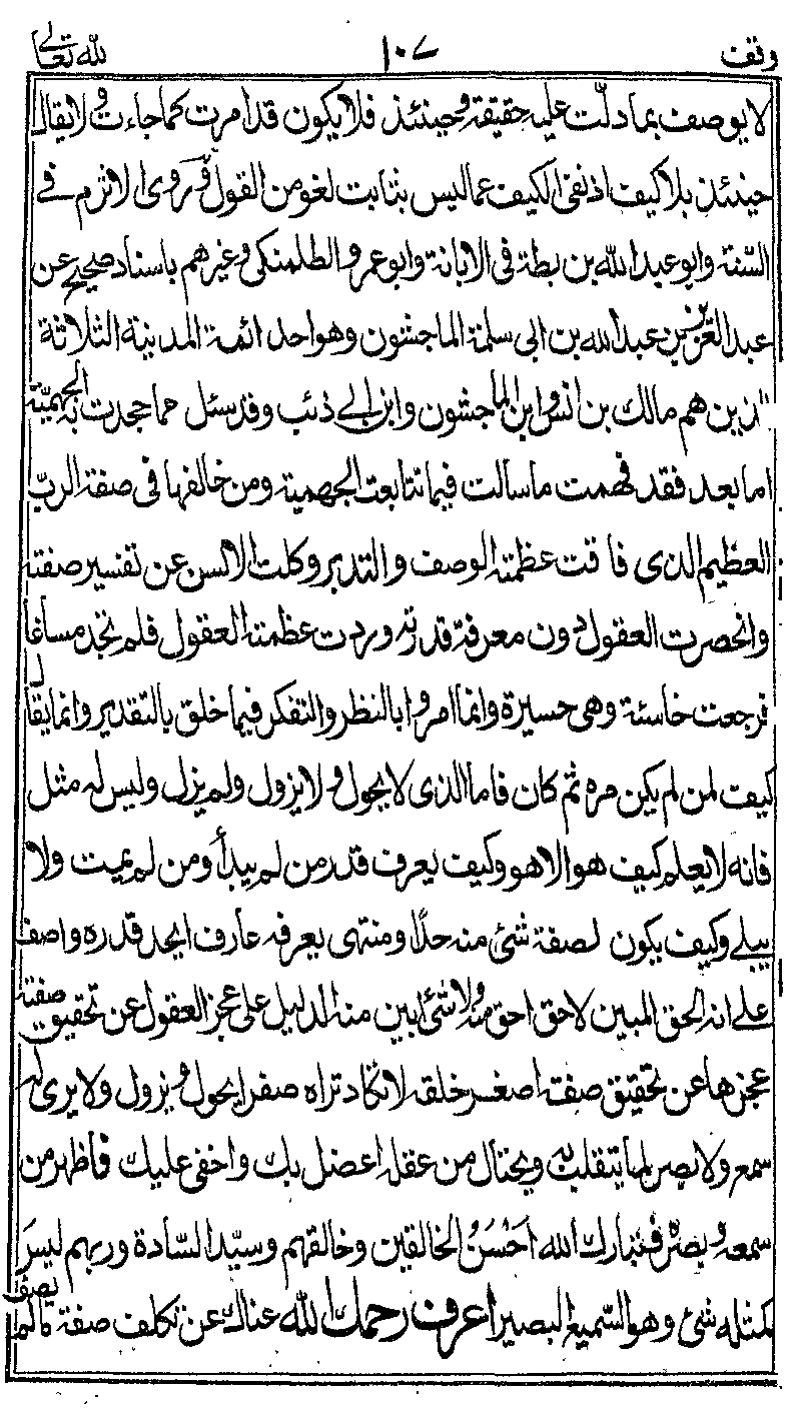 وقف ١٠٧ لله تعالى
لا يوصف بما دلت عليه حقيقة وحينئذ فلا يكون قد امرت كما جاءت ولا يقال
حينئذ بلا كيف اذ نفى الكيف عما ليس بثابت لغو من القول وروى الاثرم فے
السنة وابو عبد الله بن بطة فى الابانة وابو عمرو الطلمنكى وغيرهم باسناد صحيح عن
عبد العزيز بن عبد الله بن ابى سلمة الماجشون وهو احد ائمة المدينة الثلاثة
الذين هم مالك بن انس وابن الماجشون وابن ابے ذئب وقد سئل عما جحدت به الجهمية
اما بعد فقد فهمت ما سالت فيما تتابعت الجهمية ومن خالفها فى صفة الربّ
العظيم الذى فاقت عظمته الوصف والتدبر وكلت الالسن عن تفسير صفته
وانحصرت العقول دون معرفة قدرته وردت عظمته العقول فلم تجد مساغا
فرجعت خاسئة وهى حسيرة وانما امروا بالنظر والتفكر فيما خلق بالتقدير وانما يقال
كيف لمن لم يكن مره ثم كان فاما الذى لا يحول ولا يزول ولم يزل وليس له مثل
فانه لا يعلم كيف هو الا هو وكيف يعرف قدر من لم يبدأ ومن لم يميت ولا
يبلے وكيف يكون لصفة شئ منه حدًا ومنتهى يعرفه عارف ايحد قدره واصف
علے انه الحق المبين لا حق احق منه ولا شئ ابين منه الدليل على عجز العقول عن تحقيق صفته
عجزها عن تحقيق صفة اصغر خلقه لا تكاد تراه صغرا يحول ويزول ولا يرى له
سمع ولا بصر لما يتقلب به ويحتال من عقله اعضل بك واخفى عليك فما ظهر من
سمعه وبصره فتبارك الله اَحْسَنُ الخالقين وخالقهم وسيّد السّادة وربهم ليسَ
كمثله شئ وهو السّميع البصير اعرف رحمك الله غناك عن تكلف صفة ما لم يصف